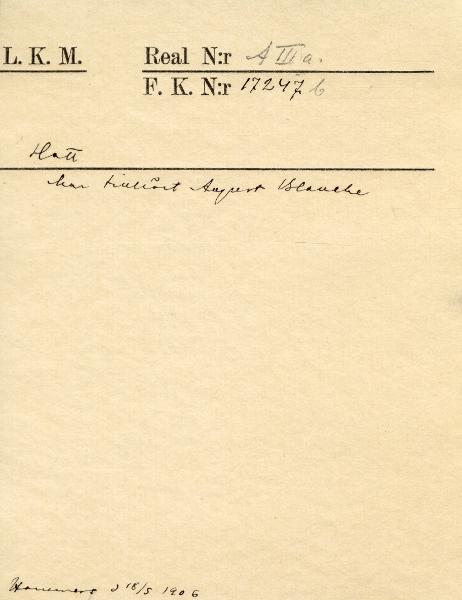 L. K. M. Real N:r A III a.
F. K. N:r 17247 b
Hatt
har tillhört August Blanche
d 18/5 1906